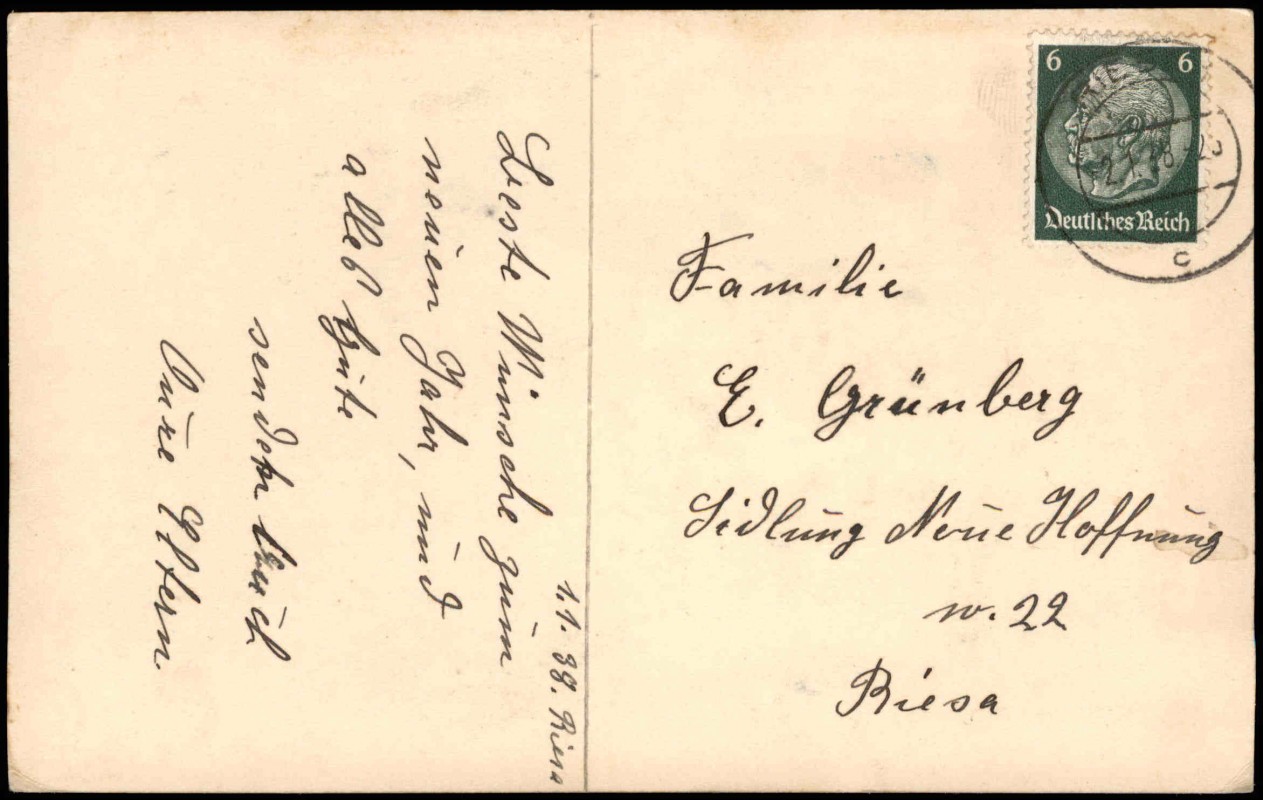 1.1.38. Riesa
Beste Wünsche zum
neuen Jahr, und
alles gute
senden Euch
Eure Eltern.
6 6
Deutsches Reich
2.1.38
c
Familie
E. Grünberg
Siedlung Neue Hoffnung
n. 22
Riesa